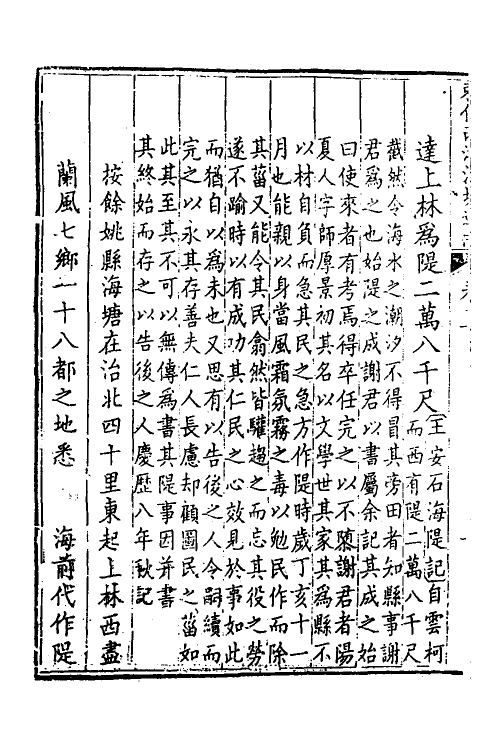 達上林為隄二萬八千尺
王安石海隄記自雲柯
而西有隄二萬八千尺
截然令海水之潮汐不得冒其旁田者知縣事謝
君為之也始隄之成謝君以書屬余記其成之始
曰使來者有考焉得卒任完之以不隳謝君者陽
夏人字師厚景初其名以文學世其家其為縣不
以材自負而急其民之急方作隄時歲丁亥十一
月也能親以身當風霜氛霧之毒以勉民作而除
其菑又能令其民翕然皆驩趨之而忘其役之勞
遂不踰時以有成功其仁民之心效見於事如此
而猶自以為未也又思有以告後之人令嗣續而
完之以永其存善夫仁人長慮却顧圖民之菑如
此其至其不可以無傳為書其隄事因并書
其終始而存之以告後之人慶歷八年秋記
按餘姚縣海塘在治北四十里東起上林西盡
蘭風七鄉一十八都之地悉 海前代作隄